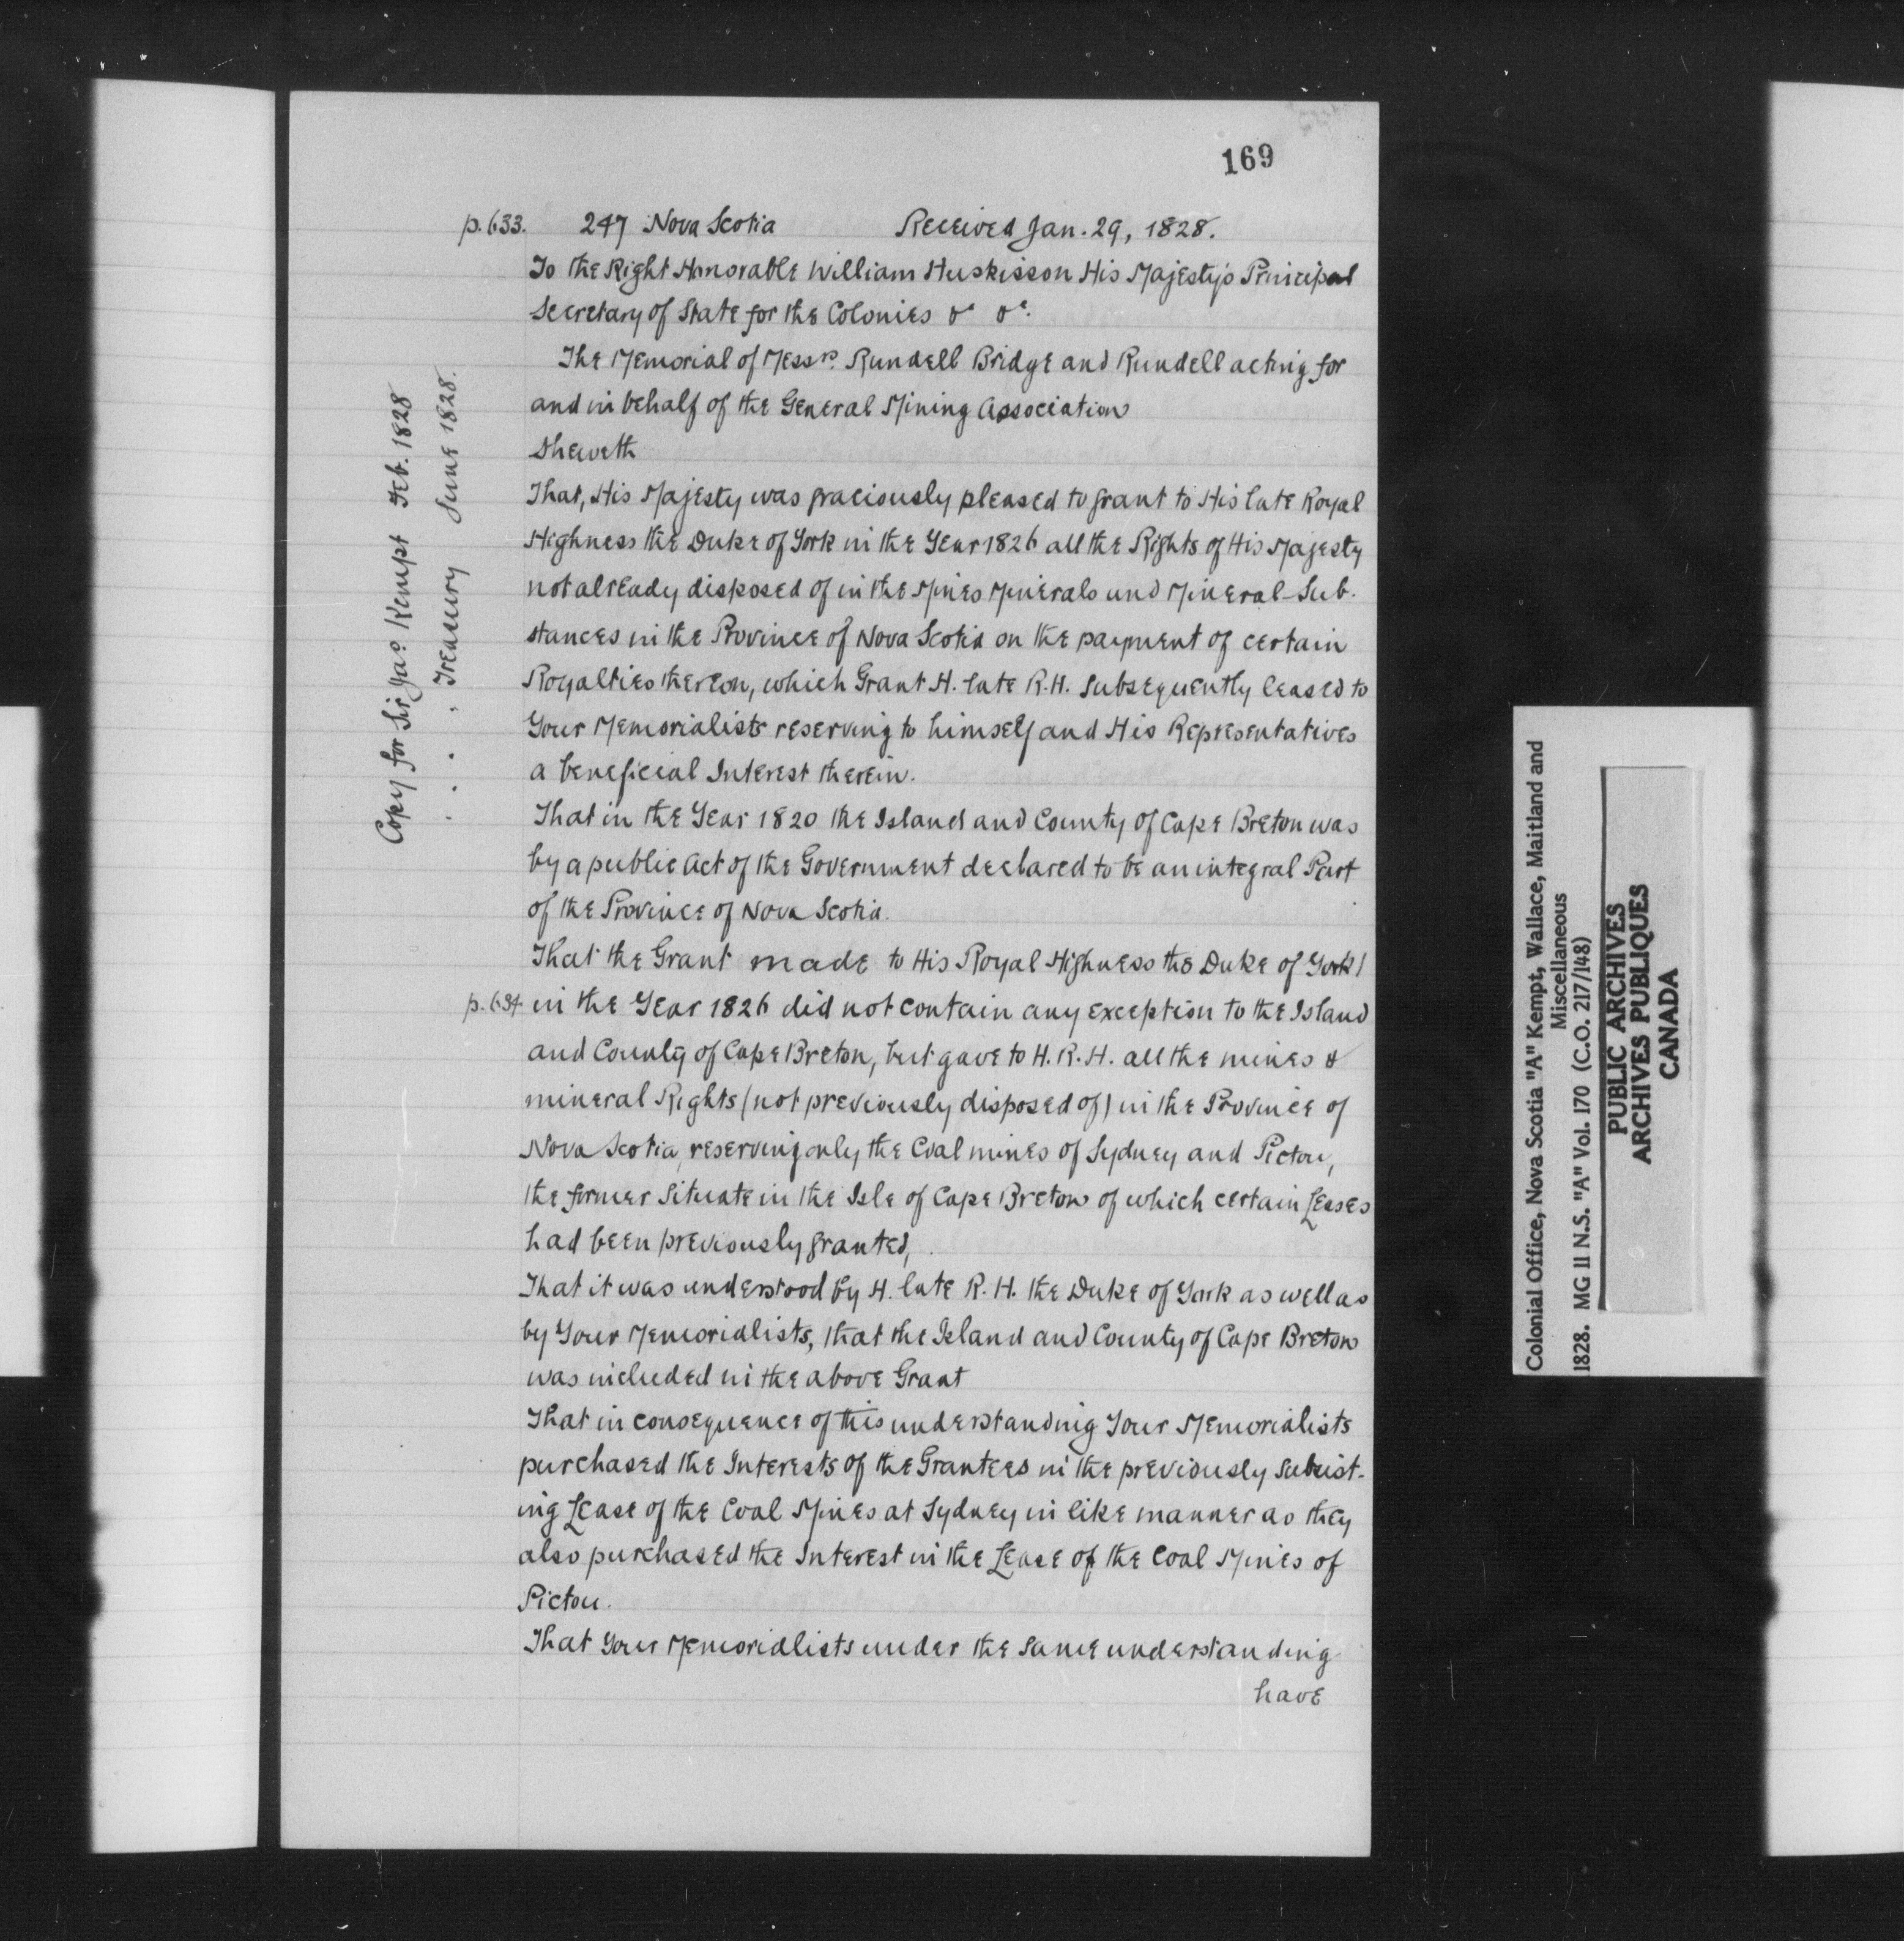 169
p.633. 247 Nova Scotia Received Jan. 29, 1828.
To the Right Honorable William Huskisson His Majesty's Principal
Secretary of State for the Colonies &c &c.
The Memorial of Messrs. Rundell Bridge and Rundell acting for
and in behalf of the General Mining Association
Sheweth
That, His Majesty was graciously pleased to grant to His late Royal
Highness the Duke of York in the Year 1826 all the Rights of His Majesty
not already disposed of in the Mines Minerals and Mineral Sub-
stances in the Province of Nova Scotia on the payment of certain
Royalties thereon, which Grant H. late R.H. subsequently leased to
Your Memorialists reserving to himself and His Representatives
a beneficial Interest therein.
That in the Year 1820 the Island and County of Cape Breton was
by a public Act of the Government declared to be an integral Part
of the Province of Nova Scotia.
That the Grant made to His Royal Highness the Duke of York/
p.634 in the Year 1826 did not contain any exception to the Island
and County of Cape Breton, but gave to H.R.H. all the mines &
mineral Rights (not previously disposed of) in the Province of
Nova Scotia, reserving only the Coal mines of Sydney and Pictou,
the former Situate in the Isle of Cape Breton of which certain Leases
had been previously granted,
That it was understood by H. late R.H. the Duke of York as well as
by Your Memorialists, that the Island and County of Cape Breton
was included in the above Grant
That in consequence of this understanding Your Memorialists
purchased the Interests of the Grantees in the previously subsist-
ing Lease of the Coal Mines at Sydney in like manner as they
also purchased the Interest in the Lease of the Coal Mines of
Pictou.
That Your Memorialists under the same understanding
have
Copy for Sir Jas Kempt Feb. 1828
. . . Treasury June 1828.
Colonial Office, Nova Scotia "A" Kempt, Wallace, Maitland and
Miscellaneous
1828. MG 11 N.S. "A" Vol. 170 (C.O. 217/148)
PUBLIC ARCHIVES
ARCHIVES PUBLIQUES
CANADA